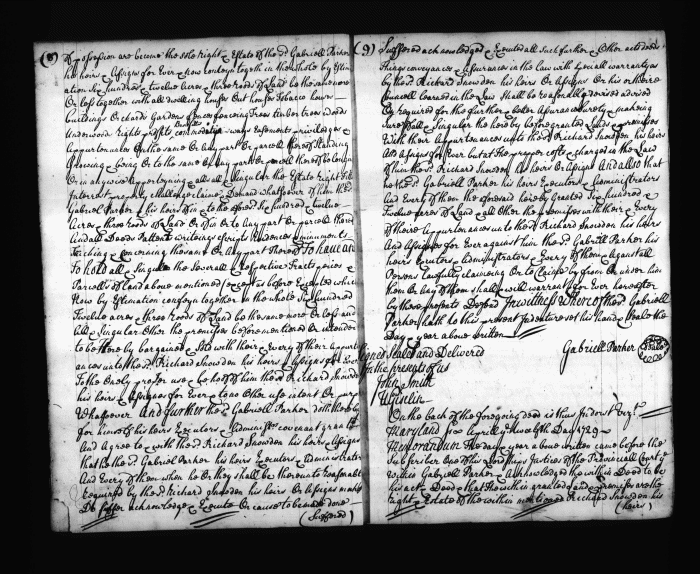 (8)
of possession are become the sole right & Estate of the sd. Gabriell Parker
his heirs & Assignes for Ever & now conteyn together in the whole by Estim
ation Six hundred & twelve acres & three roods of Land be the same more
Or less together with all dwelling houses Out houses Tobacco houses
buildings Orchards Gardens fences Trees timber trees Woods
Underwoods Rights profits commodities ways Easments priviledges &
Appurtenances to the same Or any part Or parcell thereof Standing
Growing & being Or to the same Or any part Or parcell thereof belonging
Or in anywise Appertaining & also all & singular the Estate right Title
Interest property challenge claime & Demand whatsoever of him the sd.
Gabriel Parker & his heirs in & to the aforesd. Six hundred & twelve
Acres & three roods of Land Or of in Or to any part Or parcell thereof
And all Deeds Pattents writeings Escripts Evidences & muniments
touching & concerning the same Or any part Thereof To have and
To hold all & singular the Severall & respective Tracts peices &
Parcells of Land above mentioned Except as before Excepted which
Now by Estimation conteyn together in the whole Six hundred
Twelve acres & three roods of Land be the same more Or less and
all & Singular Other the premisses before mentioned Or intended
to be thereby bargained & sold with their & Every of their appurten
ances unto the sd. Richard Snowden his heirs & Assignes for Ever
To the Only proper use & behoof of him the sd. Richard Snowden
his heirs & Assignes for Ever & to no Other use intent Or purpose
Whatsoever And further the sd. Gabriell Parker doth hereby
for himself his heirs Executors & Administrs. covenant grant
And Agree to & with the sd. Richard Snowden his heirs & Assignes
that he the sd. Gabriel Parker his heirs Executors & Administrators
And Every of them when he Or they shall be thereunto reasonably
Required by the sd. Richard Snowden his heirs Or Assignes make
Do suffer acknowledge & Execute Or cause to be made done
(Suffered)
(9)
Suffered acknowledged & Executed all such further & Other acts deeds
things conveyances & Assurances in the law with Speciall warrantys
by the sd. Richard Snowden his heirs Or Assignes Or his or their
Councell learned in the Law shall be reasonably devised advised
Or required for the further & better Assurance & surety & making
Sure of all & Singular the hereby before granted Lands & premisses
With their Appurtenances unto the sd. Richard Snowden his heirs
And Assignes for Ever but at the proper costs & charges in the Law
of him the sd. Richard Snowden his heirs Or Assignes And also that
he the sd. Gabriell Parker his heirs Executors & Administrators
And Every of them the aforesaid hereby Granted Six hundred &
Twelve Acres of Land & all Other the premisses with their & Every
of there Appurtenances unto the sd. Richard Snowden his heirs
And Assignes for Ever against him the sd. Gabriell Parker his
heirs Exrutors & Administrators & Every of them & against all
Persons Lawfully claimeing Or to Claime by from Or under him
them Or any of them shall & will warrant & for Ever hereafter
by these presents Defend In witness whereof the sd. Gabriell
Parker hath to this present Indenture set his hand & Seale the
Day & year above written
Signed Sealed and Delivered
in the presents of us
Gabriell Parker
Seale
John Smith
On the back of the foregoing deed is thus Indorst Vizt.
Maryland Sc Aprill ye Twelfth Day 1729
Memorandum The day & year above written came before the
Subscriber One of his Lordships Justices of the Provincial Court ye
within Gabriell Parker & Acknowledged the within Deed to be
his act & Deed & that the within granted Land & premisses are the
Right & Estate of the within mentioned Richard Snowden his
(heirs)